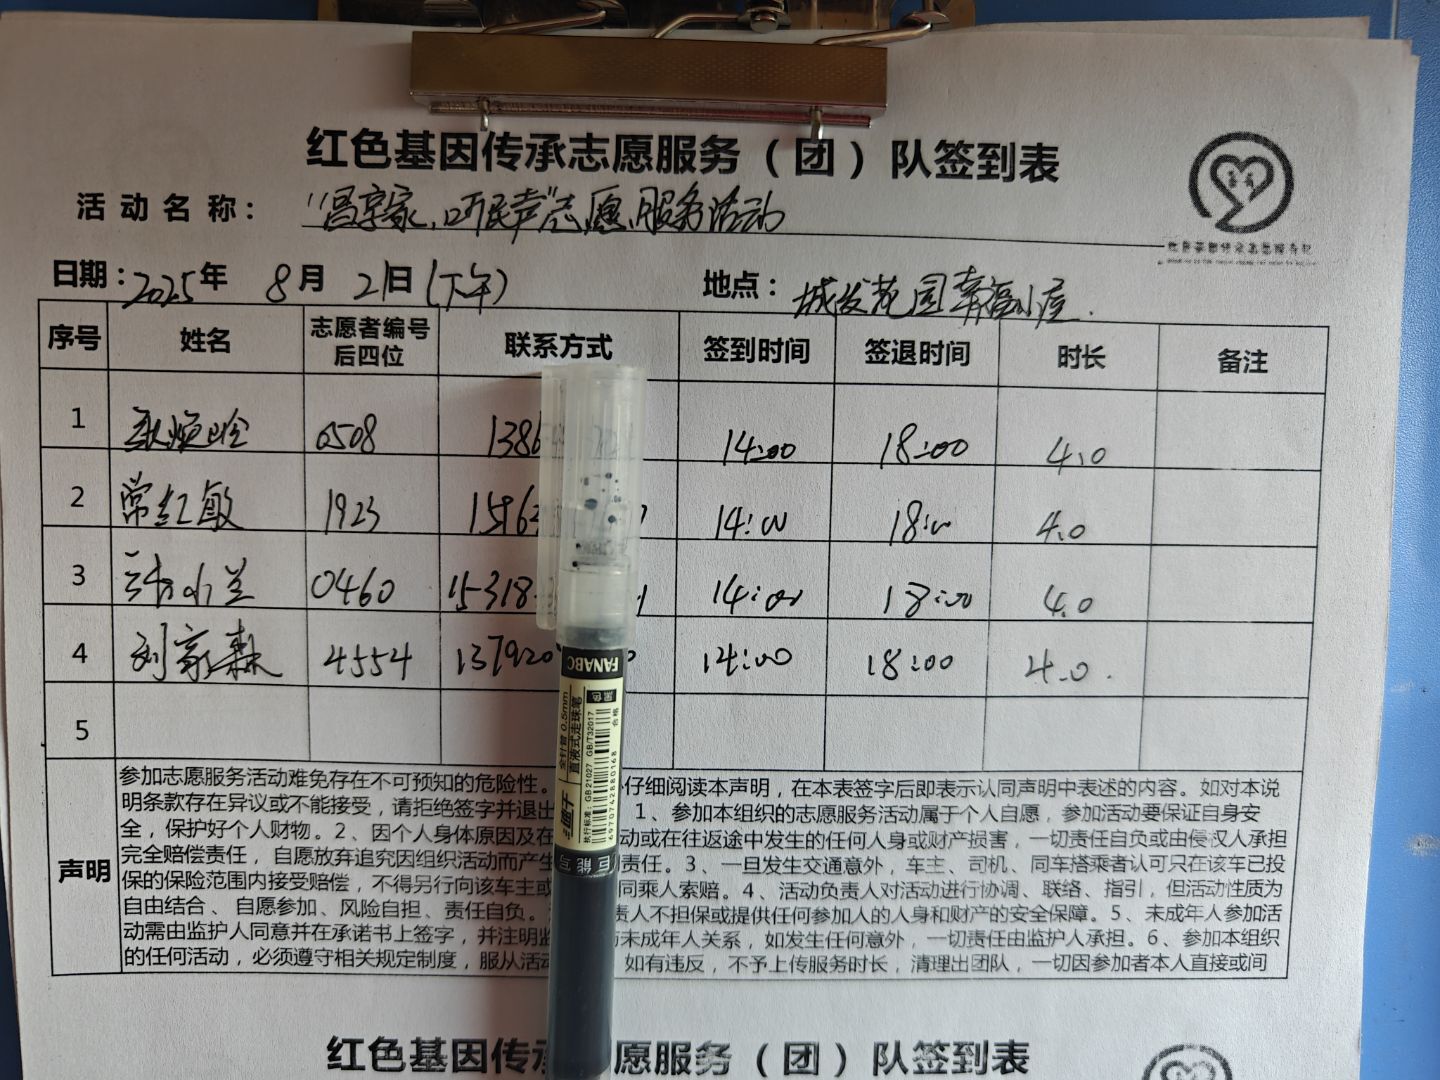 红色基因传承志愿服务（团）队签到表
活动名称：“昌享家，听民声”志愿服务活动
日期：2025年 8月 21日(下午) 地点：城发花园幸福小屋.
序号 姓名 志愿者编号后四位 联系方式 签到时间 签退时间 时长 备注
1 0508 1386 14:00 18:00 4.0
2 常红敏 1923 1596 14:00 18:00 4.0
3 0460 15318 14:00 18:00 4.0
4 刘家森 4554 137920 14:00 18:00 4.0.
5
声明
参加志愿服务活动难免存在不可预知的危险性。 仔细阅读本声明，在本表签字后即表示认同声明中表述的内容。如对本说
明条款存在异议或不能接受，请拒绝签字并退出 1、参加本组织的志愿服务活动属于个人自愿，参加活动要保证自身安
全，保护好个人财物。2、因个人身体原因及在 动或在往返途中发生的任何人身或财产损害，一切责任自负或由侵权人承担
完全赔偿责任，自愿放弃追究因组织活动而产生 责任。3、一旦发生交通意外，车主、司机、同车搭乘者认可只在该车已投
保的保险范围内接受赔偿，不得另行向该车主或 同乘人索赔。4、活动负责人对活动进行协调、联络、指引，但活动性质为
自由结合、自愿参加、风险自担、责任自负。 责人不担保或提供任何参加人的人身和财产的安全保障。5、未成年人参加活
动需由监护人同意并在承诺书上签字，并注明监 与未成年人关系，如发生任何意外，一切责任由监护人承担。6、参加本组织
的任何活动，必须遵守相关规定制度，服从活动 如有违反，不予上传服务时长，清理出团队，一切因参加者本人直接或间
FANABC
黑色
全针管 0.5mm
直液式走珠笔
执行标准：GB21027 GB/T32017
6970742880168
合格
巨能写
红色基因传 愿服务（团）队签到表